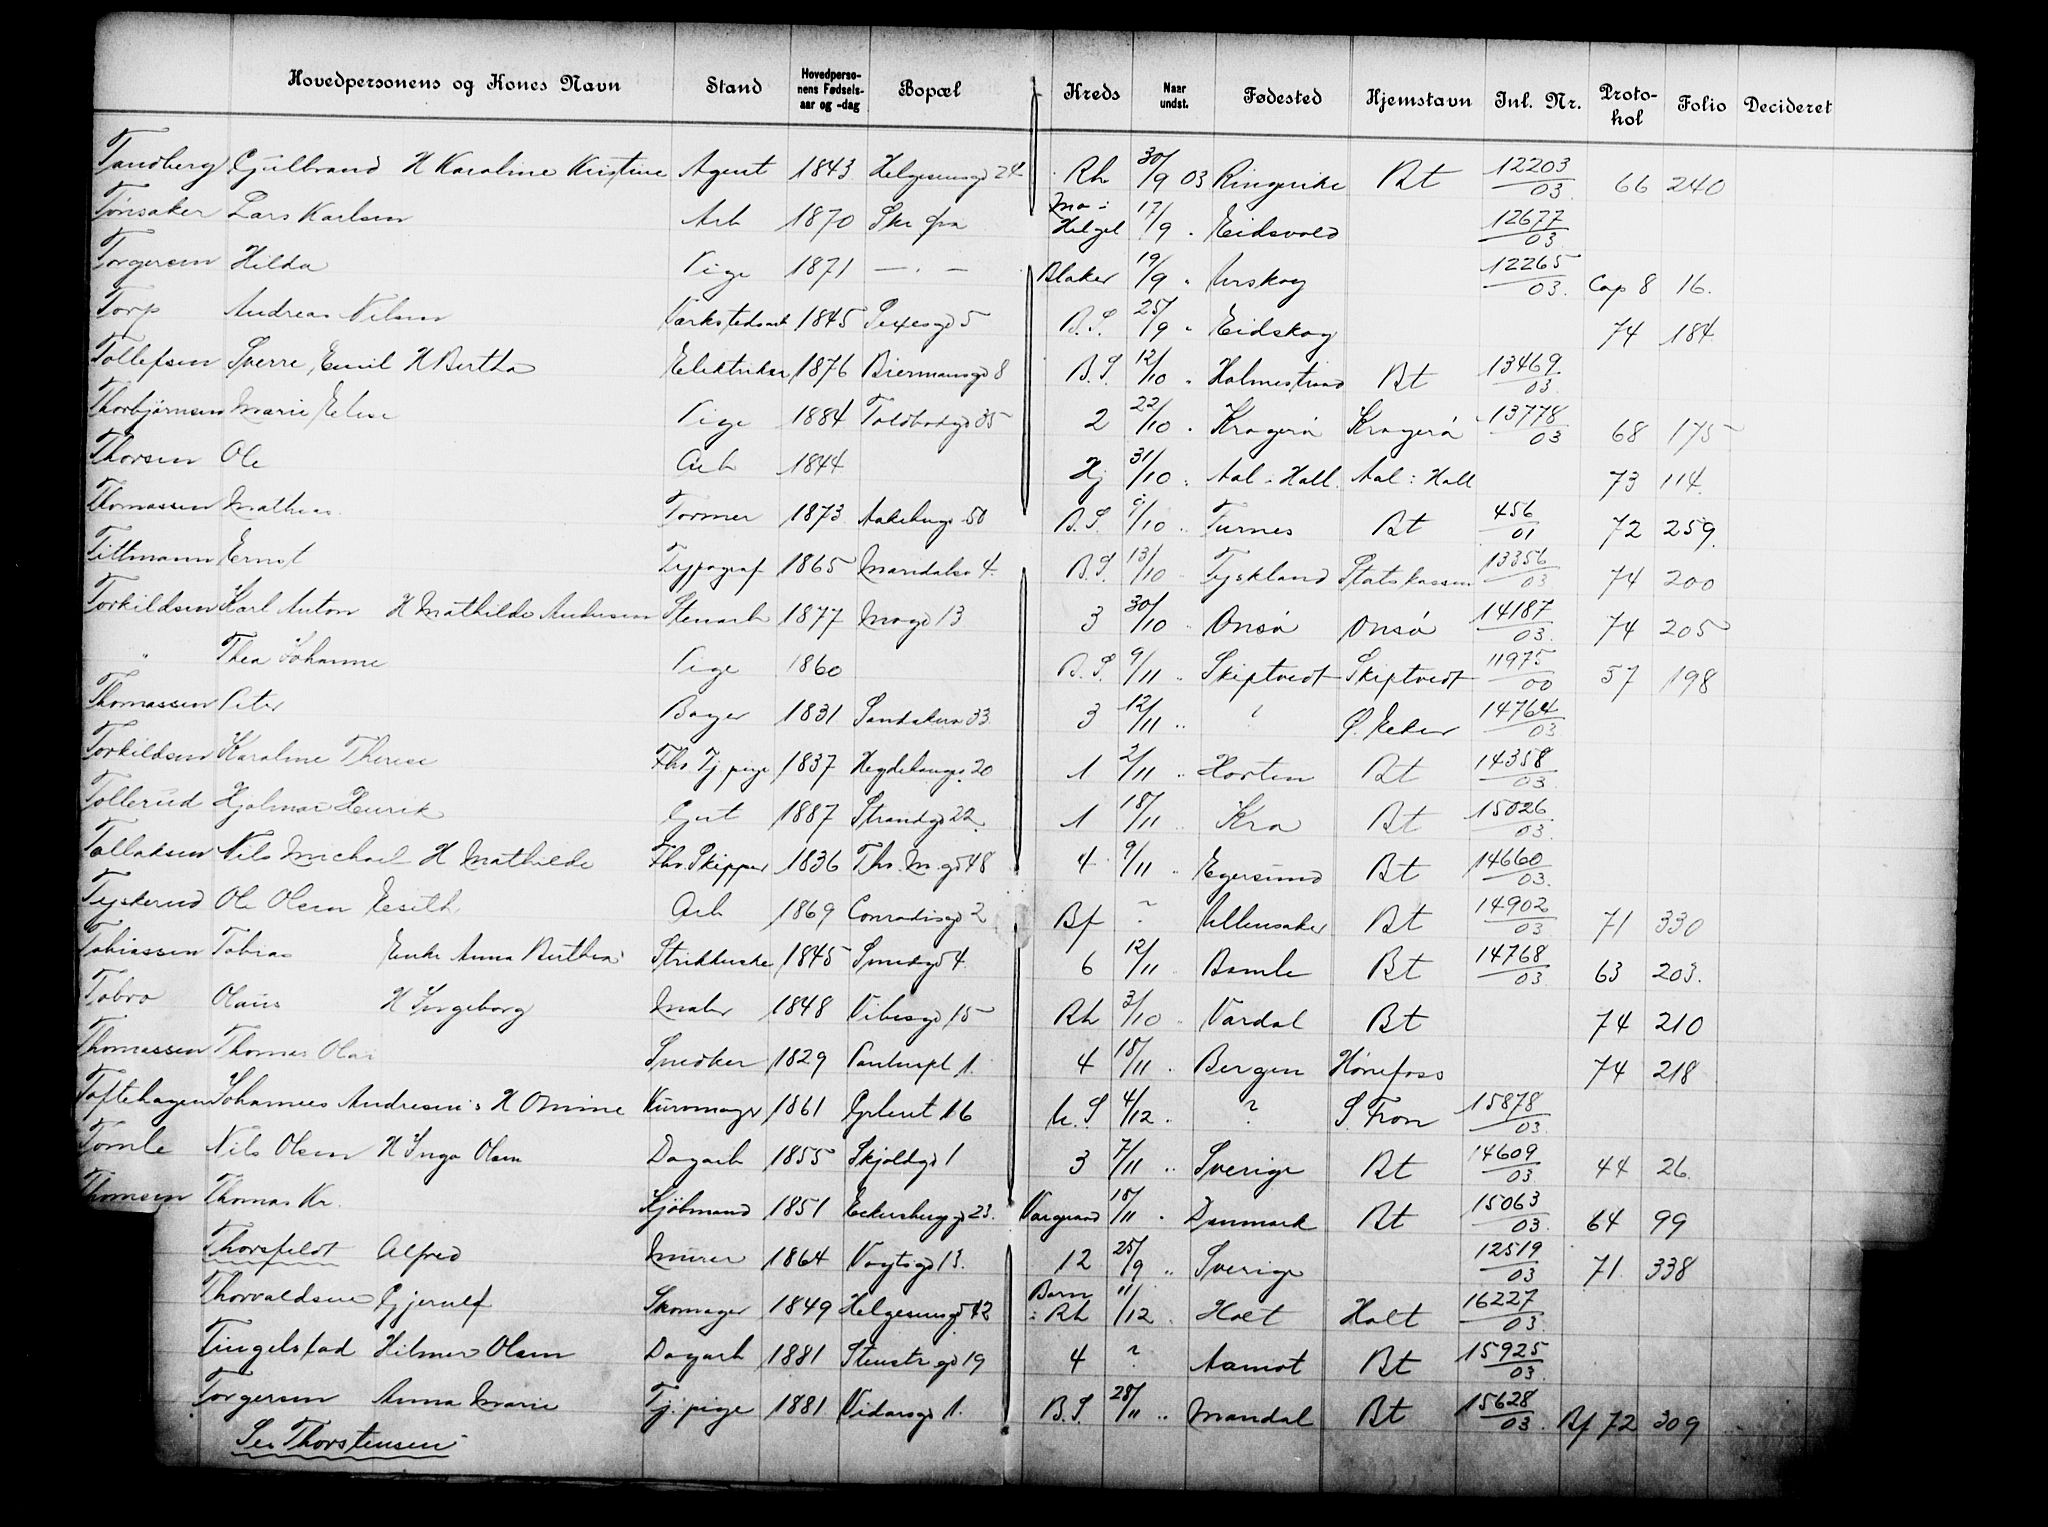 Hovedpersonens og Kones Navn Stand Hovedpersonens Fødselsaar og -dag Bopæl Kreds Naar undst. Fødested Hjemstavn Inl. Nr. Protokol Folio Decideret
Tandberg Gulbrand H Karoline Kristine Agent 1843 Helgesensgd 24 Rh 30/9 03 Ringerike Bt 12203/03 66 240
Tønsaker Lars Karlsen Arb 1870 Mo i Helgel 17/9 " Eidsvold 12677/03
Torgersen Hilda Pige 1871 — " — Blaker 19/9 " Urskog 12265/03. Cop 8 16.
Torp Andreas Nilsen Værkstedsarb 1845 Sexesgd 5 B.S. 25/9 " Eidskog 74 184
Tollefsen Sverre, Emil H Bertha Elektriker 1876 Biermansgd 8 B.S. 12/10 " Holmestrand Bt 13469/03
Thorbjørnsen Marie Elise Pige 1884 Toldbodgd 35 2 22/10 " Kragerø Kragerø 13778/03 68 175
Thorsen Ole Arb 1844 Hj 31/10 " Aal i Hall. Aal i Hall 73 114.
Thomassen Mathias Former 1873 Aakebergv 50 B.S. /10 " Furnes Bt 456/01 72 259.
Tittmann Ernst Typograf 1865 Mandalsg 4. B.S. 13/10 " Tyskland Statskassen 13356/03 74 200
Torkildsen Karl Anton H Mathilde Andersen Stenarb 1877 Mogd 13 3 30/10 " Onsø Onsø 14187/03. 74 205
" Thea Johanne Pige 1860 B.S. 9/11 " Skiptvedt Skiptvedt 11975/00 57 198
Thomassen Peter Bager 1831 Sandakerv 33 3 12/11 " ? Ø. Eeker 14764/03
Torkildsen Karoline Therese Fhv Tj pige 1837 Hegdehaugs 20 1 2/11 " Horten Bt 14358/03.
Tollerud Hjalmar Henrik Gut 1887 Strandgd 22. 1 18/11 " Kra Bt 15026/03.
Tallaksen Nils Michael H Mathilde Fhv. Skipper 1836 Ths. M. gd 48 4 9/11 " Egersund Bt 14660/03.
Tyskerud Ole Olsen Arb 1869 Conradisgd 2 Bf ? Ullensaker Bt 14902/03 71 330
Tobiassen Tobias Enke Anna Berthea Strikkerske 1845 Smedgd 4. 6 12/11 " Bamle Bt 14768/03 63 203.
Tobro Olaus H Ingeborg Maler 1848 Vibesgd 15 Rh 3/10 " Vardal Bt 74 210
Thomassen Thomas Olai Snedker 1829 Pauluspl 1. 4 18/11 " Bergen Hønefoss 74 218
Toftehagen Johannes Andresen's H Omine Kurvmager 1861 Grlnlert 16 U.S 4/12 " ? S. Fron 15878/03
Tomle Nils Olsen H Inga Olsen Dagarb 1855 Skjoldgd 1 3 7/11 " Sverige Bt 14609/03 44 26
Thomsen Thomas Kr. Kjöbmand 1851 Eckersberggd 23. 18/11 " Danmark Bt 15063/03. 64 99
Thorsfeldt Alfred Murer 1864 Vogtsgd 13. 12 25/9 " Sverige 12519/03 71 338
Thorvaldsen Gjerulf Skomager 1849 Helgesensgd 42 Barn i Rh 11/12 " Holt Holt 16227/03.
Tingelstad Hilmer Olsen Dagarb 1881 Stenstr gd 19 4 ? Aamot Bt 15925/03.
Torgersen Anna Marie Tj. pige 1881 Vidarsgd 1. B.S. 28/11 " Mandal Bt 15628/03. Bf 72 309
Se Thorstensen